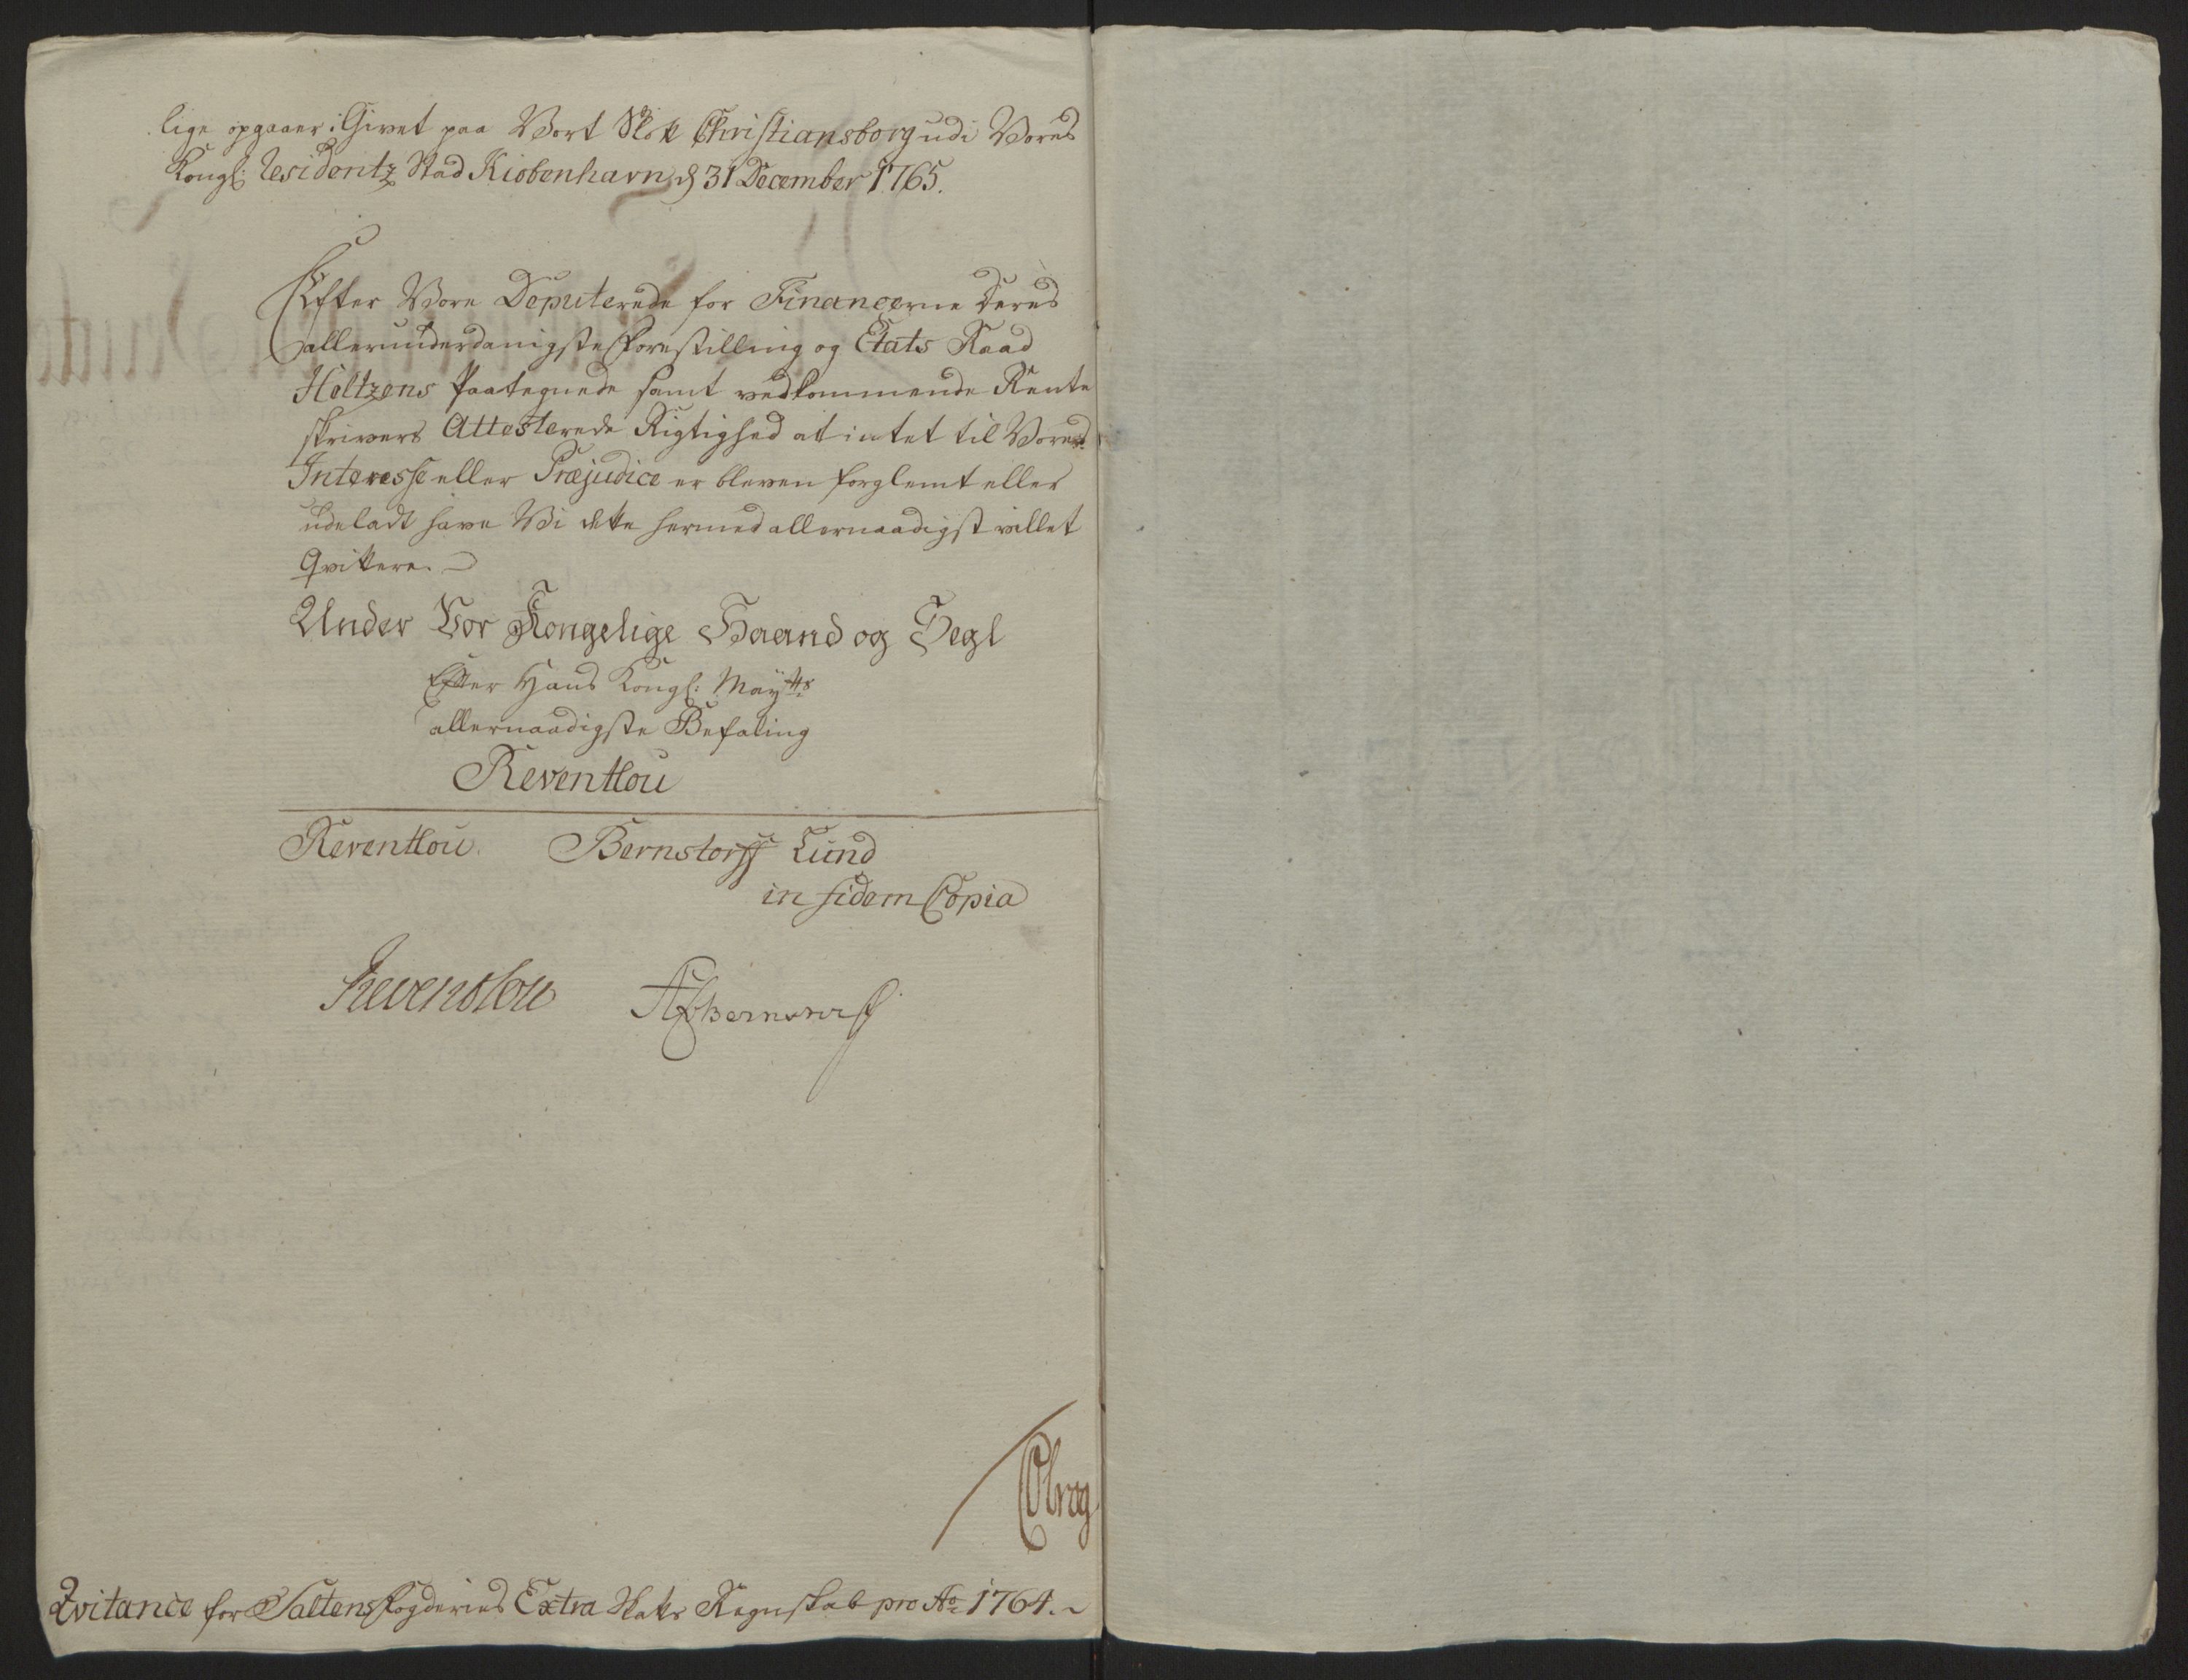 lige opgaaer: Givet paa Vort Slot Christiansborg udi Vores
Kongl: Residentz Stad Kiøbenhavn, d 31 December 1765.
Efter Vore Deputerede for Financerne Deres
allerunderdanigste Forestilling og Etats Raad
Holtzens Paategnede samt vedkommende Rente
skrivers Attesterede Rigtighed at intet til Vores
Interesse eller Præjudice er bleven forglemt eller
udeladt have Vi dette hermed allernaadigst villet
Qvittere.
Under Vor Kongelige Haand og Segl
Efter Hans Kongl: Maÿtts
allernaadigste Befaling
Reventlou
Reventlou. Bernstorff Lund
in fidem Copia
Reventlou AGBernstorff
Qvitance for Saltens Fogderies Extra Skatts Regnskab pro Ao 1764.